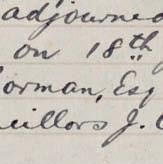 adjourned
on 18th
orman, Esq
cillors J.